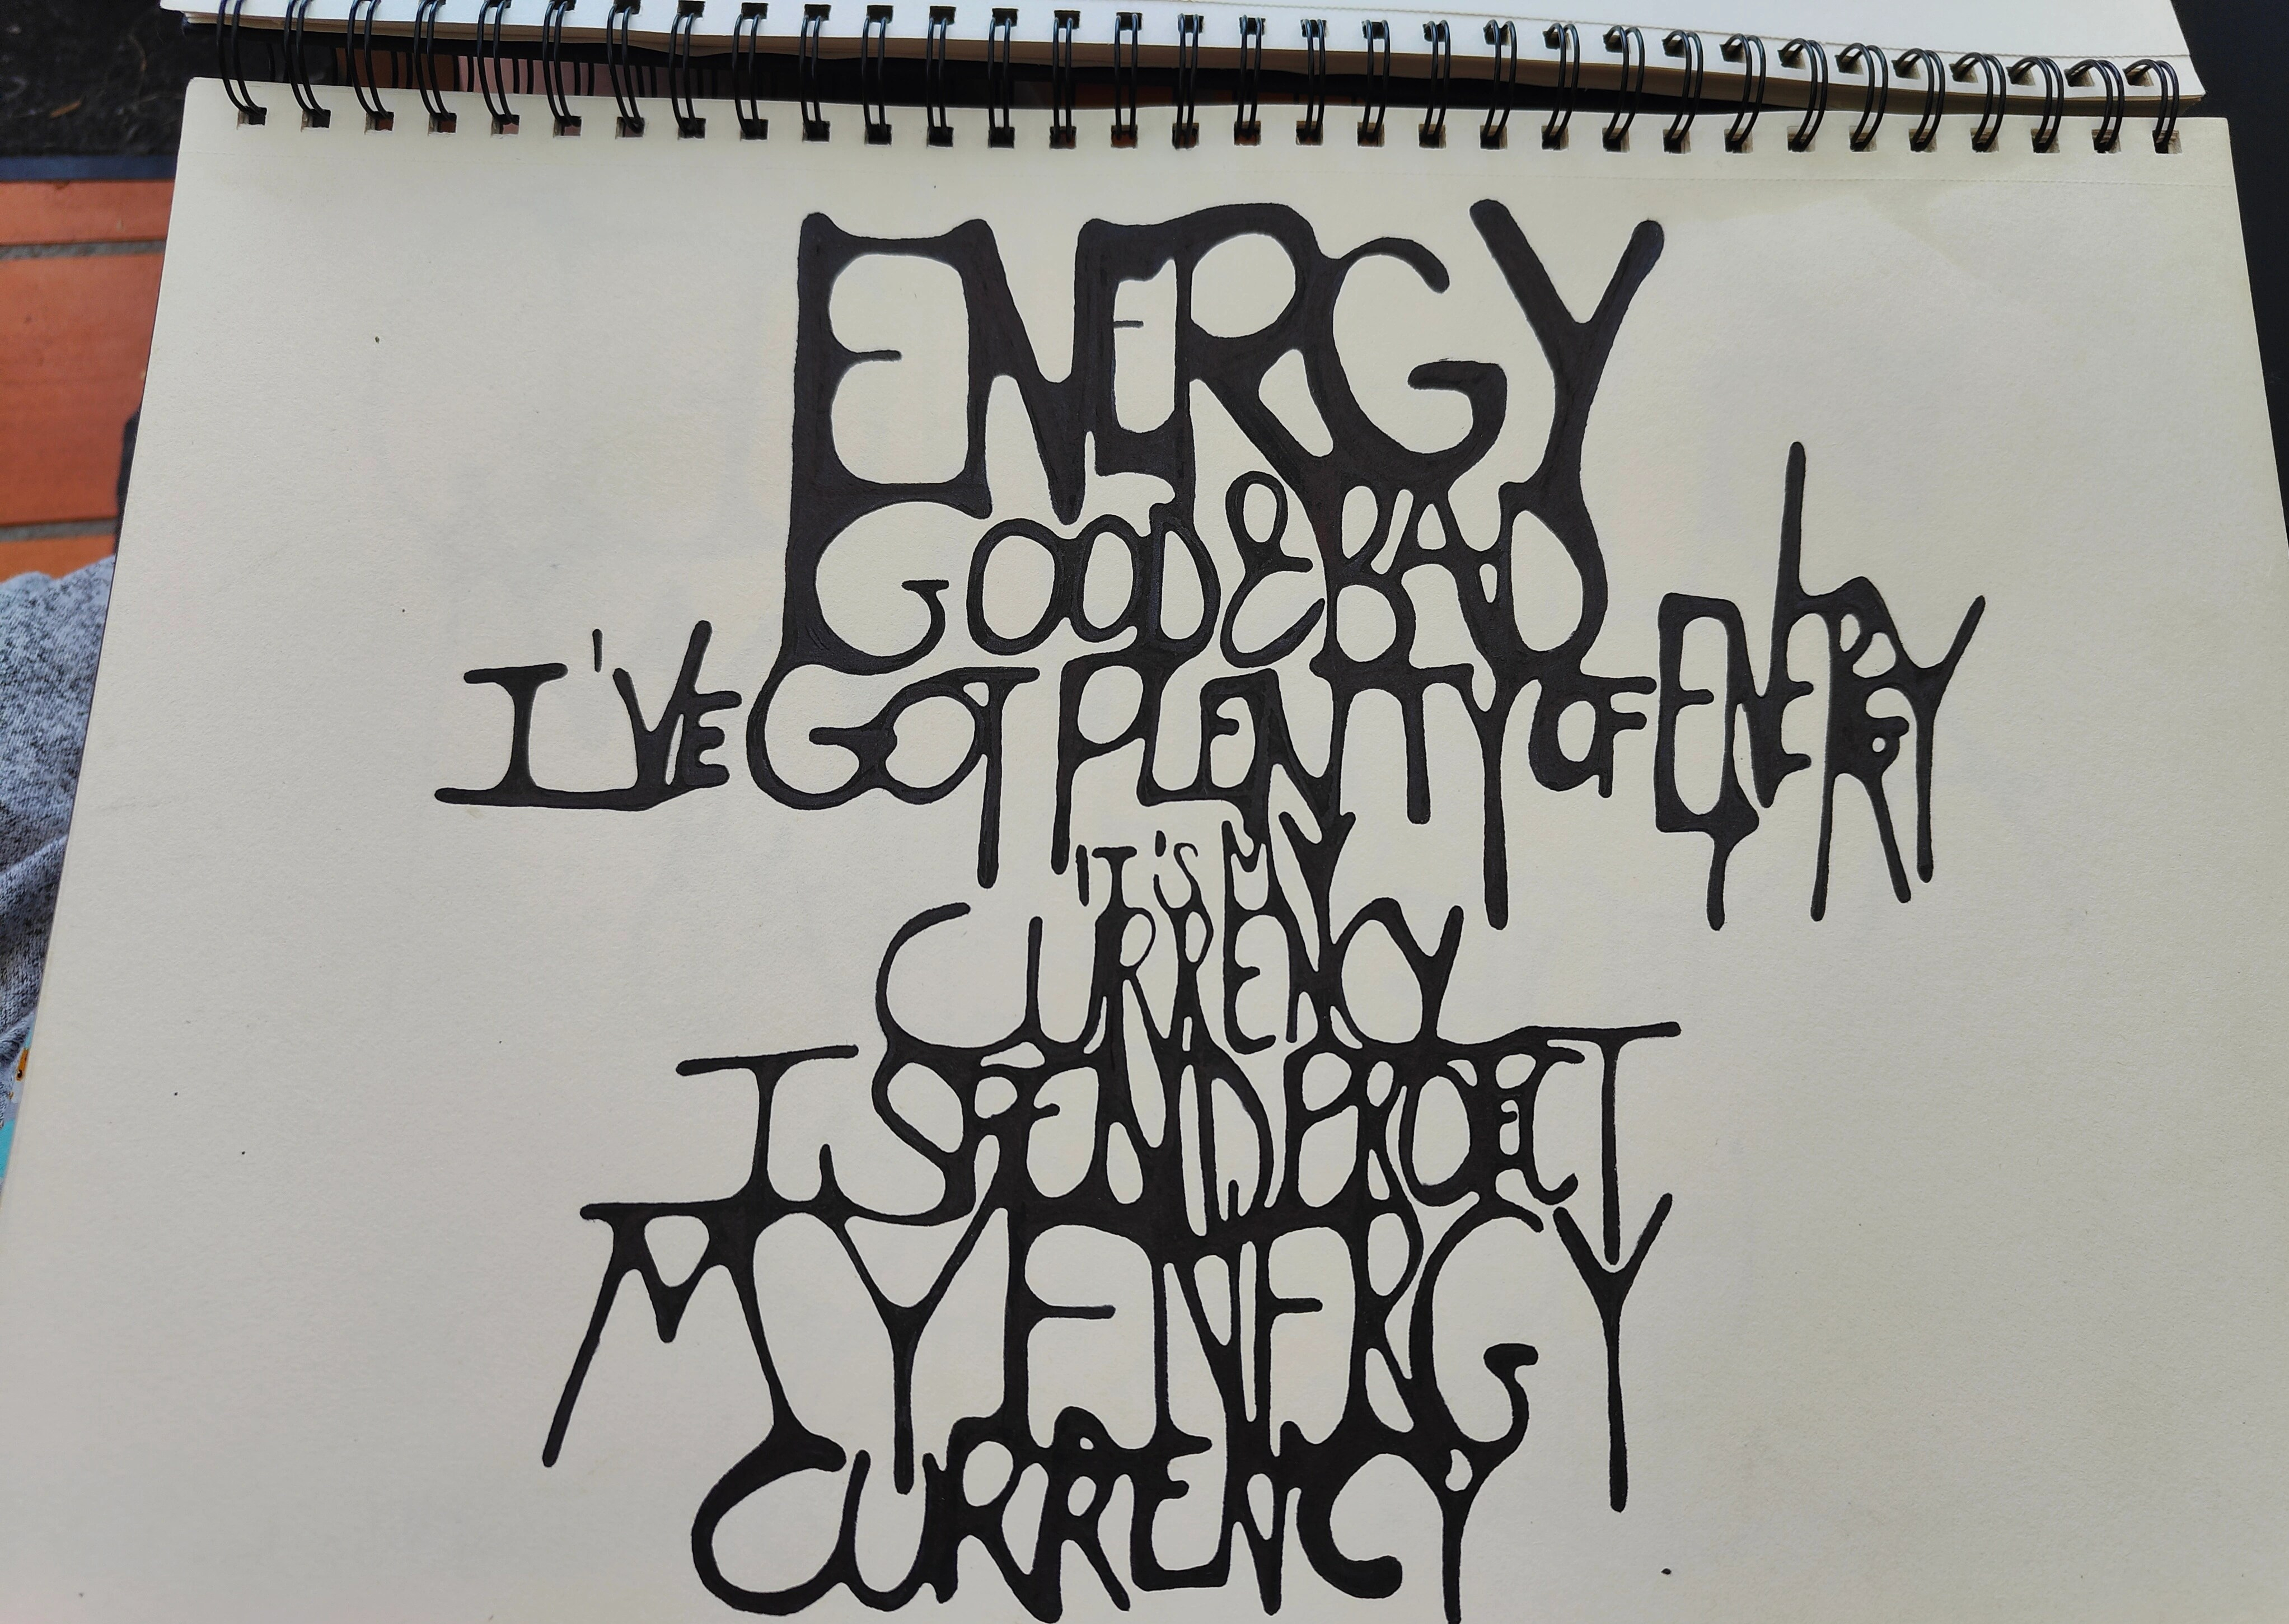 ENERGY
GOOD & BAD
I'VE GOT PLENTY OF ENERGY
IT'S MY
CURRENCY
I SPEND PROTECT
MY ENERGY
CURRENCY